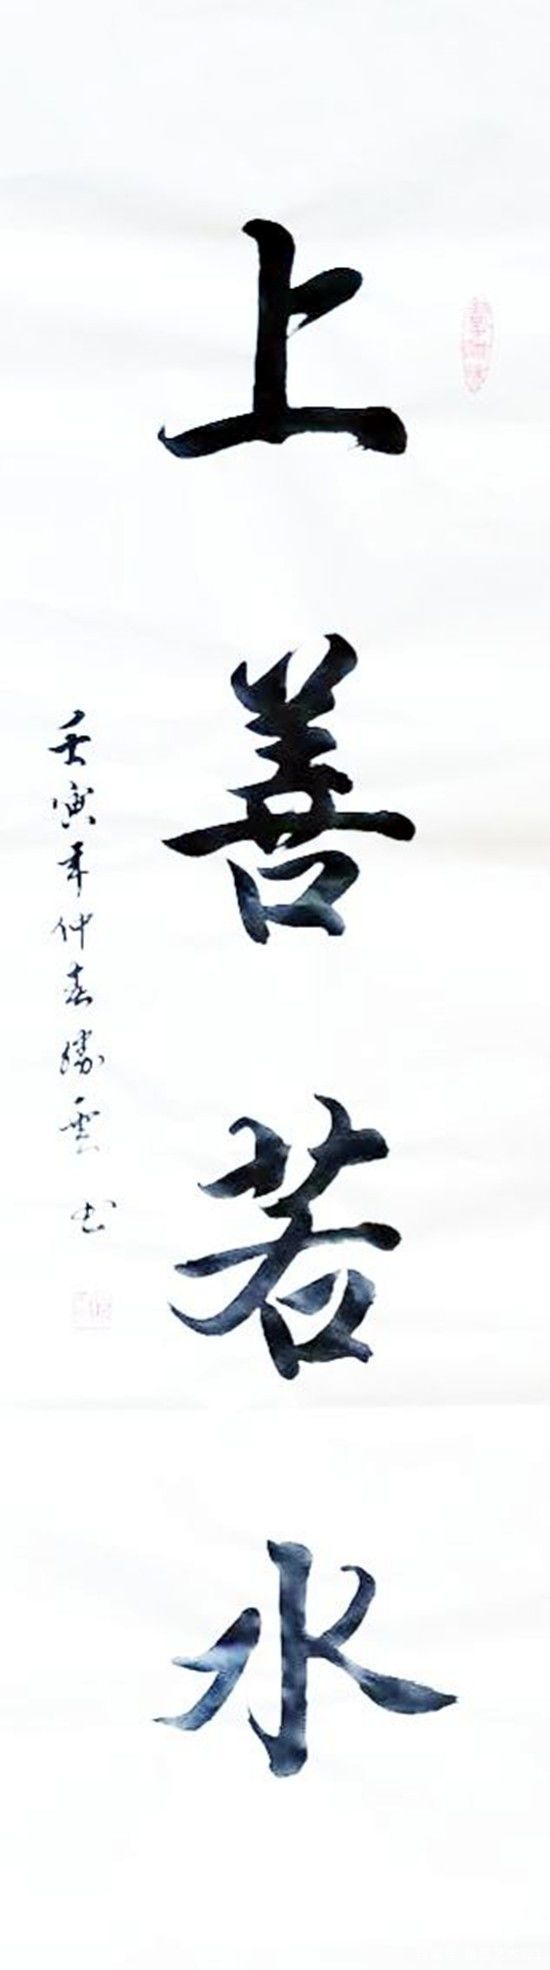 上善若水
壬寅年仲春勝雲书